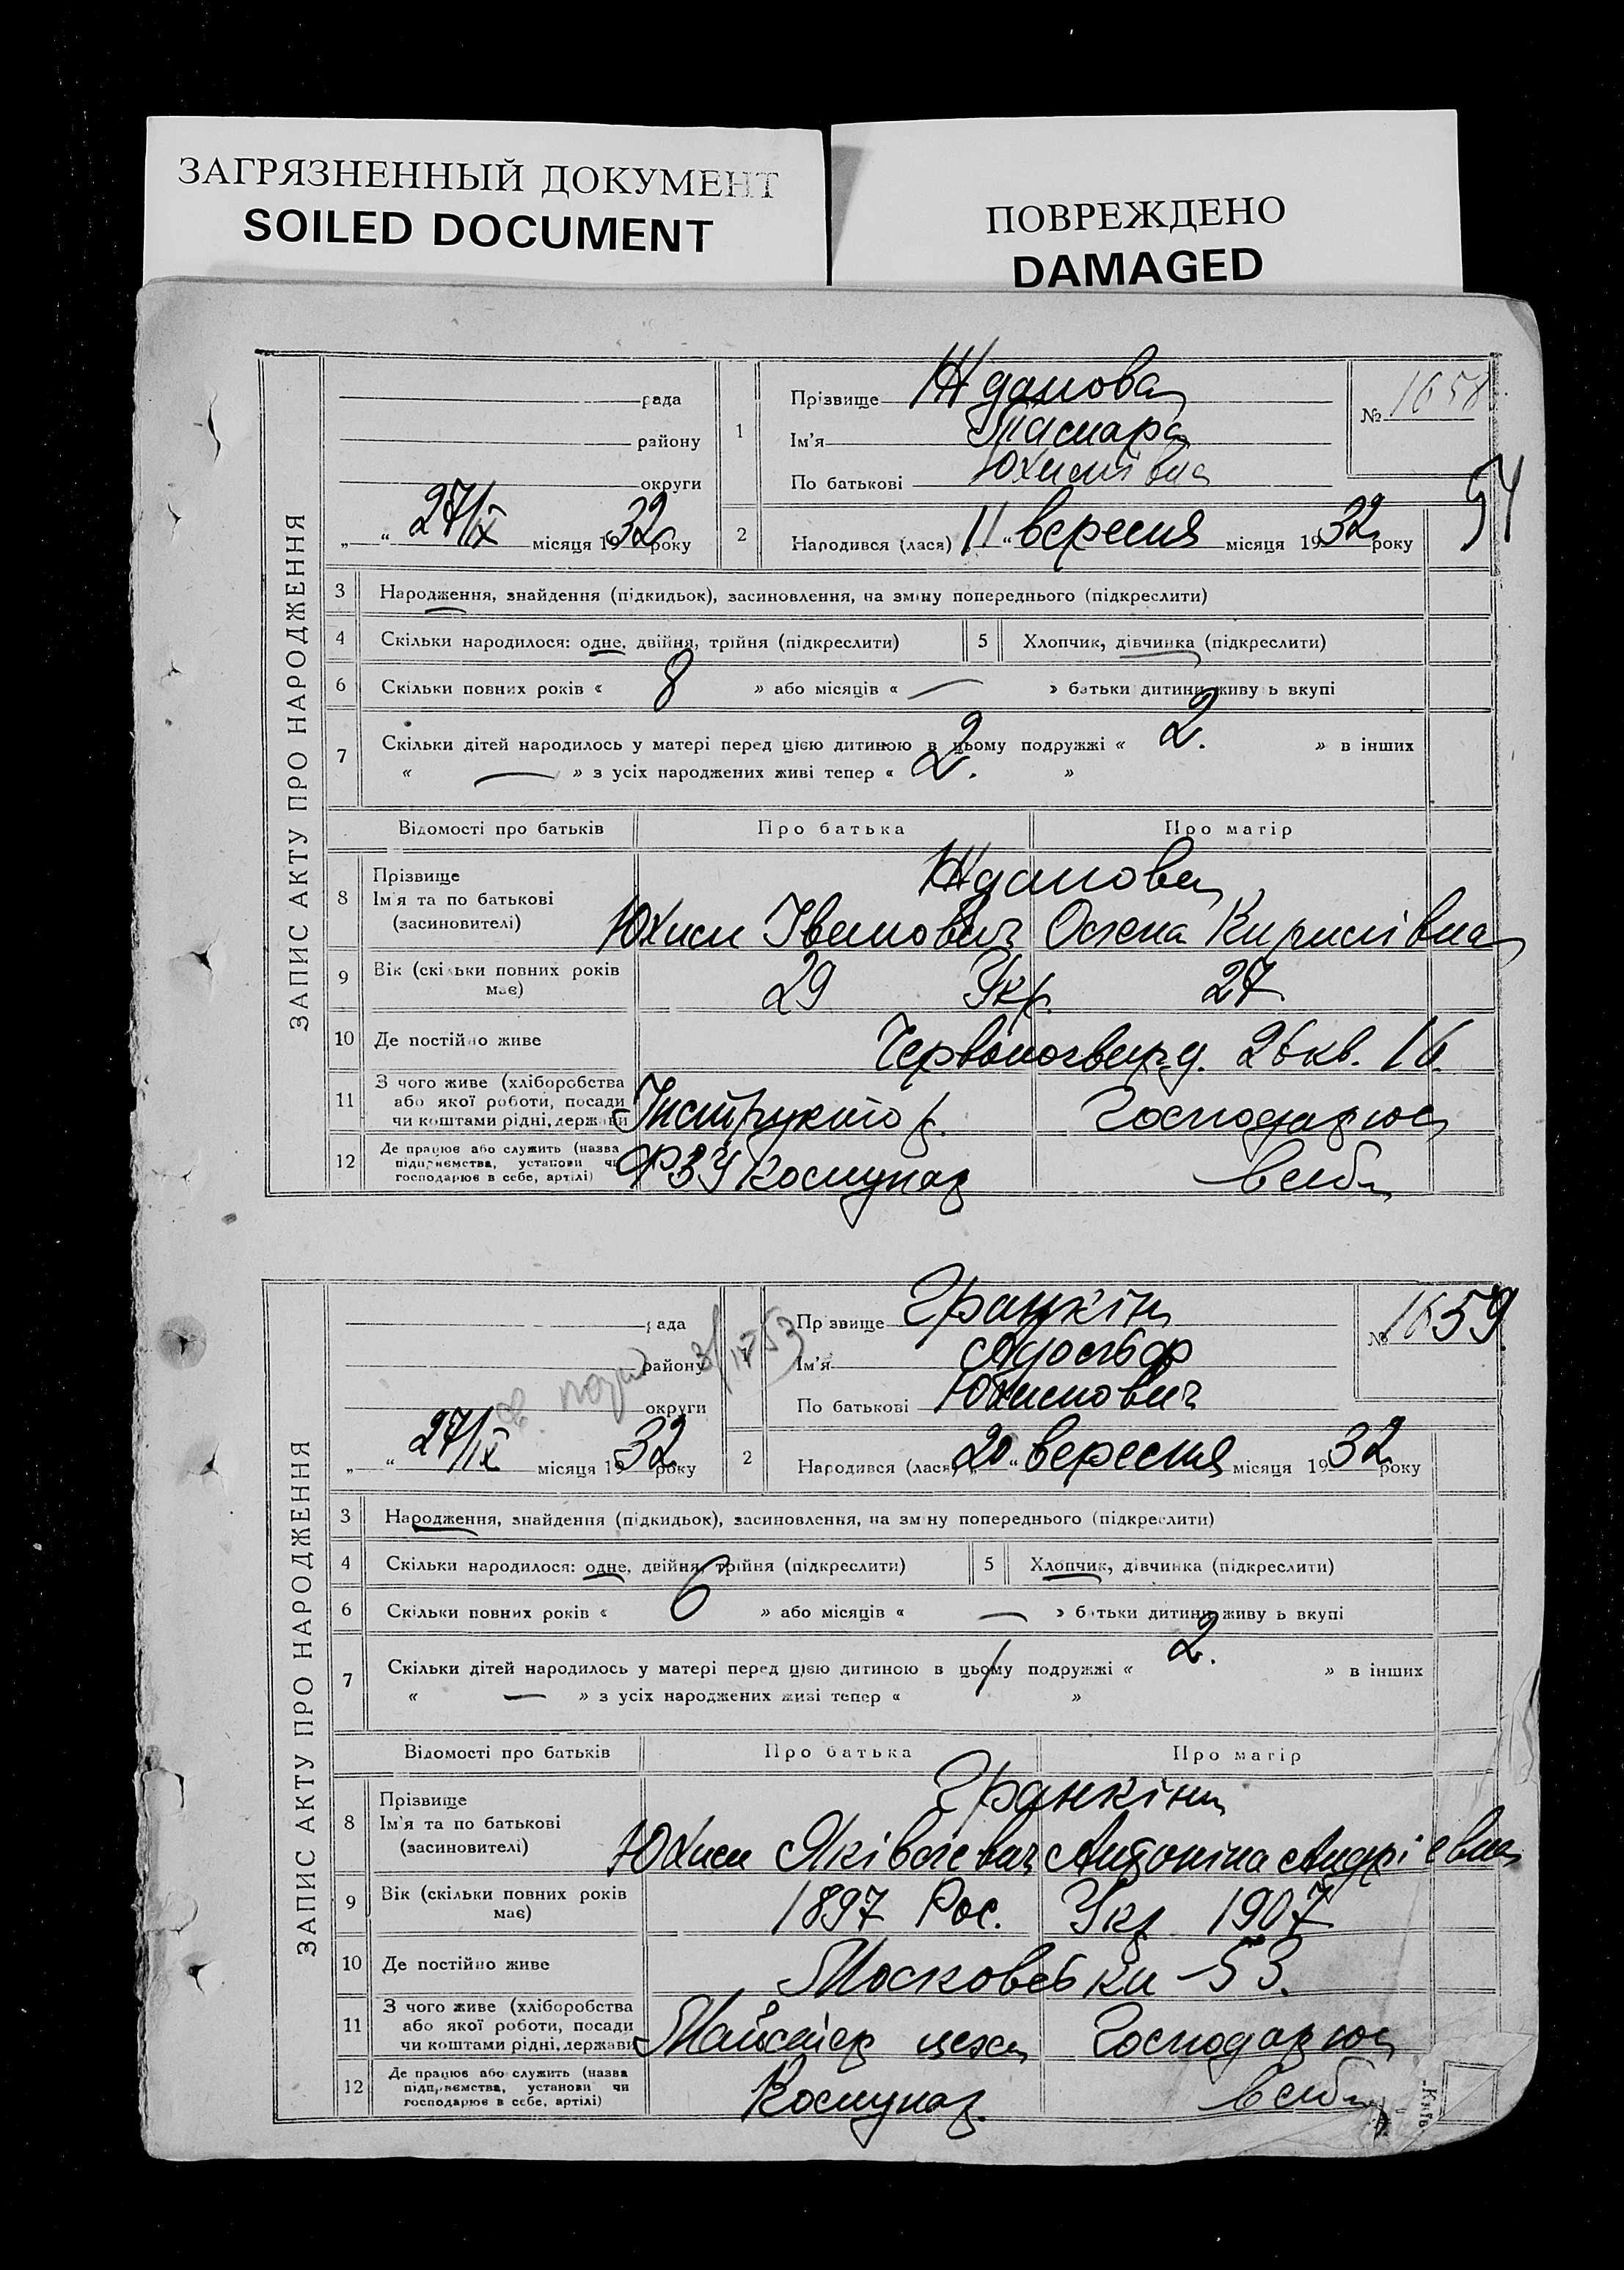 ЗАГРЯЗНЕННЫЙ ДОКУМЕНТ
SOILED DOCUMENT
ПОВРЕЖДЕНО
DAMAGED
ЗАПИС АКТУ ПРО НАРОДЖЕННЯ
рада
району
округи
„ “ 27/IX місяця 1932 року
1
Прізвище Жданова
Ім'я Тамара
По батькові Юхимівна
№ 1658
54
2 Народився (лася) 11 „ “ вересня місяця 1932 року
3 Народження, знайдення (підкидьок), засиновлення, на зміну попереднього (підкреслити)
4 Скільки народилося: одне, двійня, трійня (підкреслити) 5 Хлопчик, дівчинка (підкреслити)
6 Скільки повних років « 8 » або місяців « — » батьки дитини живуть вкупі
7 Скільки дітей народилось у матері перед цією дитиною в цьому подружжі « 2. » в інших
« — » з усіх народжених живі тепер « 2. »
Відомості про батьків Про батька Про матір
8 Прізвище Жданови
Ім'я та по батькові Юхим Іванович Олена Кирилівна
(засновителі)
9 Вік (скільки повних років має) 29 Укр. 27
10 Де постійно живе Червоногвард. 26 кв. 16.
11 З чого живе (хліборобства або якої роботи, посади чи коштами рідні, держави Інструктор Господарює
12 Де працює або служить (назва підприємства, установи чи господарює в себе, артілі) ФЗУ Комунар в себе
ЗАПИС АКТУ ПРО НАРОДЖЕННЯ
рада
району
округи
„ “ 27/IX місяця 1932 року
Прізвище Гранкін
Ім'я Адольф
По батькові Юхимович
№ 1659
2 Народився (лася) „ 20 “ вересня місяця 1932 року
3 Народження, знайдення (підкидьок), засиновлення, на зміну попереднього (підкреслити)
4 Скільки народилося: одне, двійня, трійня (підкреслити) 5 Хлопчик, дівчинка (підкреслити)
6 Скільки повних років « 6 » або місяців « — » батьки дитини живуть вкупі
7 Скільки дітей народилось у матері перед цією дитиною в цьому подружжі « 2. » в інших
« — » з усіх народжених живі тепер « 1 »
Відомості про батьків Про батька Про матір
8 Прізвище Гранкіни
Ім'я та по батькові Юхим Яківлевич Антоніна Андріевна
(засиновителі)
9 Вік (скільки повних років має) 1897 Рос. Укр 1907
10 Де постійно живе Московськи-53.
11 З чого живе (хліборобства або якої роботи, посади чи коштами рідні, держави Майстер цеха Господарює
12 Де працює або служить (назва підприємства, установи чи господарює в себе, артілі) Комунар в себе